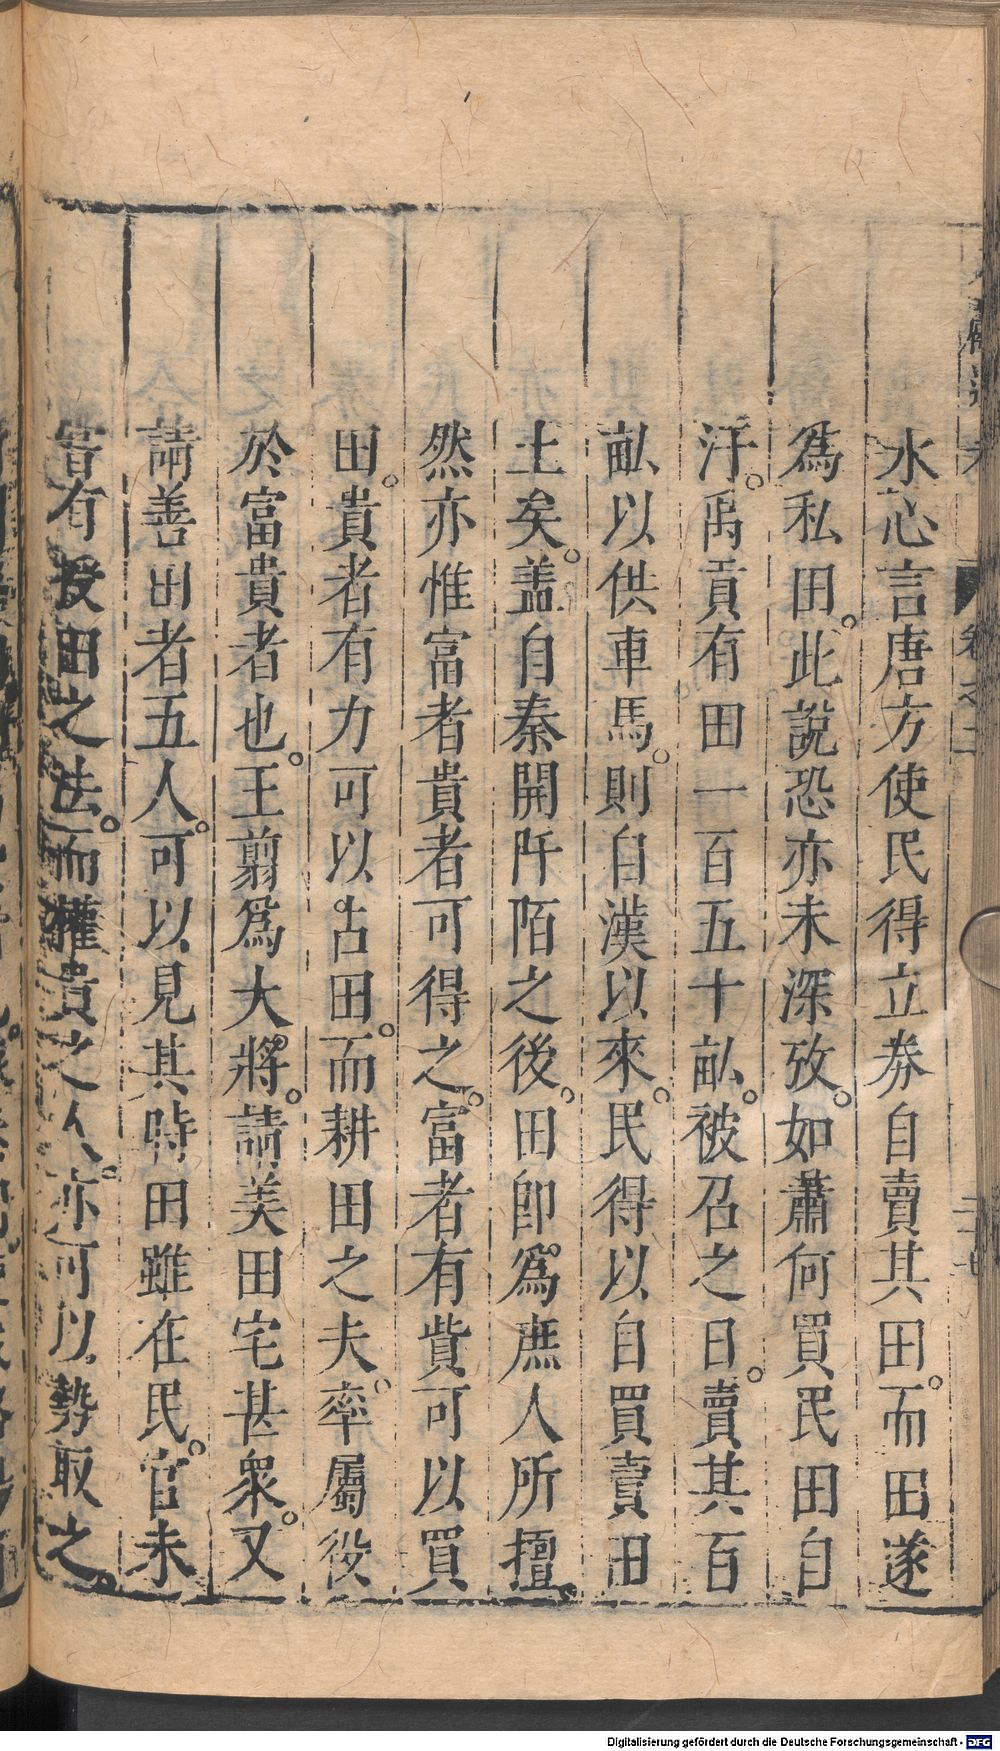 水心言唐方使民得立券自賣其田。而田遂
爲私田。此說恐亦未深攷。如蕭何買民田自
汙。禹貢有田一百五十畝。被召之日。賣其百
畝以供車馬。則自漢以來。民得以自買賣田
土矣。盖自秦開阡陌之後。田卽爲庶人所擅。
然亦惟富者貴者可得之。富者有貲可以買
田。貴者有力可以占田。而耕田之夫。率屬役
於富貴者也。王翦爲大將。請美田宅甚衆。又
請善田者五人。可以見其時田雖在民。官未
甞有授田之法。而權貴之人。亦可以勢取之。
卷之二
Digitalisierung gefördert durch die Deutsche Forschungsgemeinschaft - DFG